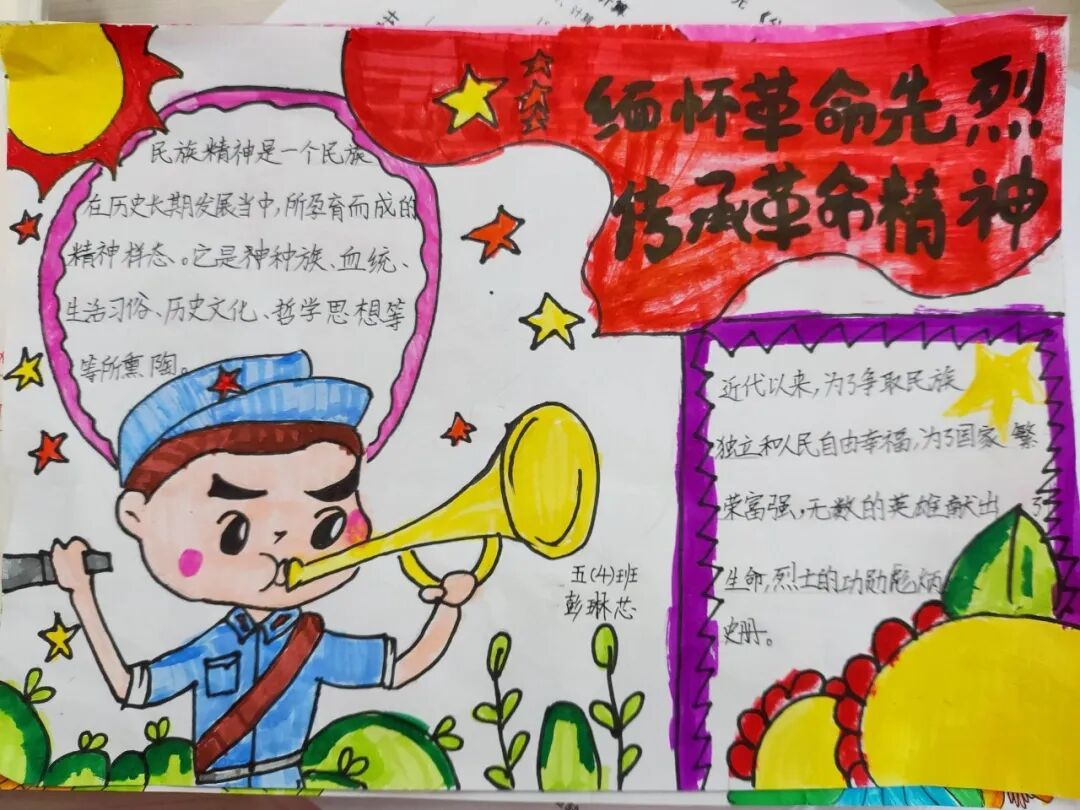 缅怀革命先烈
传承革命精神
民族精神是一个民族
在历史长期发展当中,所孕育而成的
精神样态。它是神种族、血统、
生活习俗、历史文化、哲学思想等
等所熏陶。
近代以来,为了争取民族
独立和人民自由幸福,为了国家繁
荣富强,无数的英雄献出了
生命,烈士的功勋彪炳
史册。
五(4)班
彭琳芯